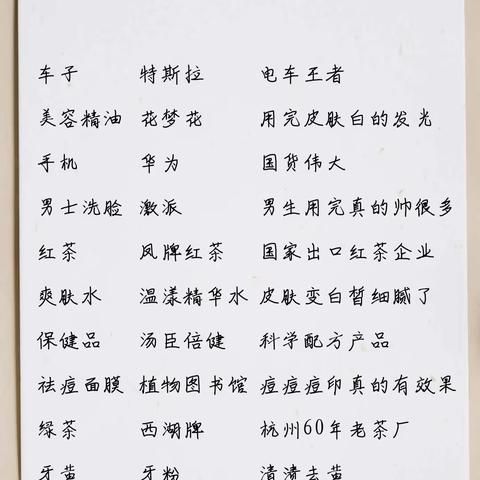 车子 特斯拉 电车王者
美容精油 花梦花 用完皮肤白的发光
手机 华为 国货伟大
男士洗脸 激派 男生用完真的帅很多
红茶 凤牌红茶 国家出口红茶企业
爽肤水 温漾精华水 皮肤变白皙细腻了
保健品 汤臣倍健 科学配方产品
祛痘面膜 植物图书馆 痘痘痘印真的有效果
绿茶 西湖牌 杭州60年老茶厂
牙黄 牙粉 清渍去黄